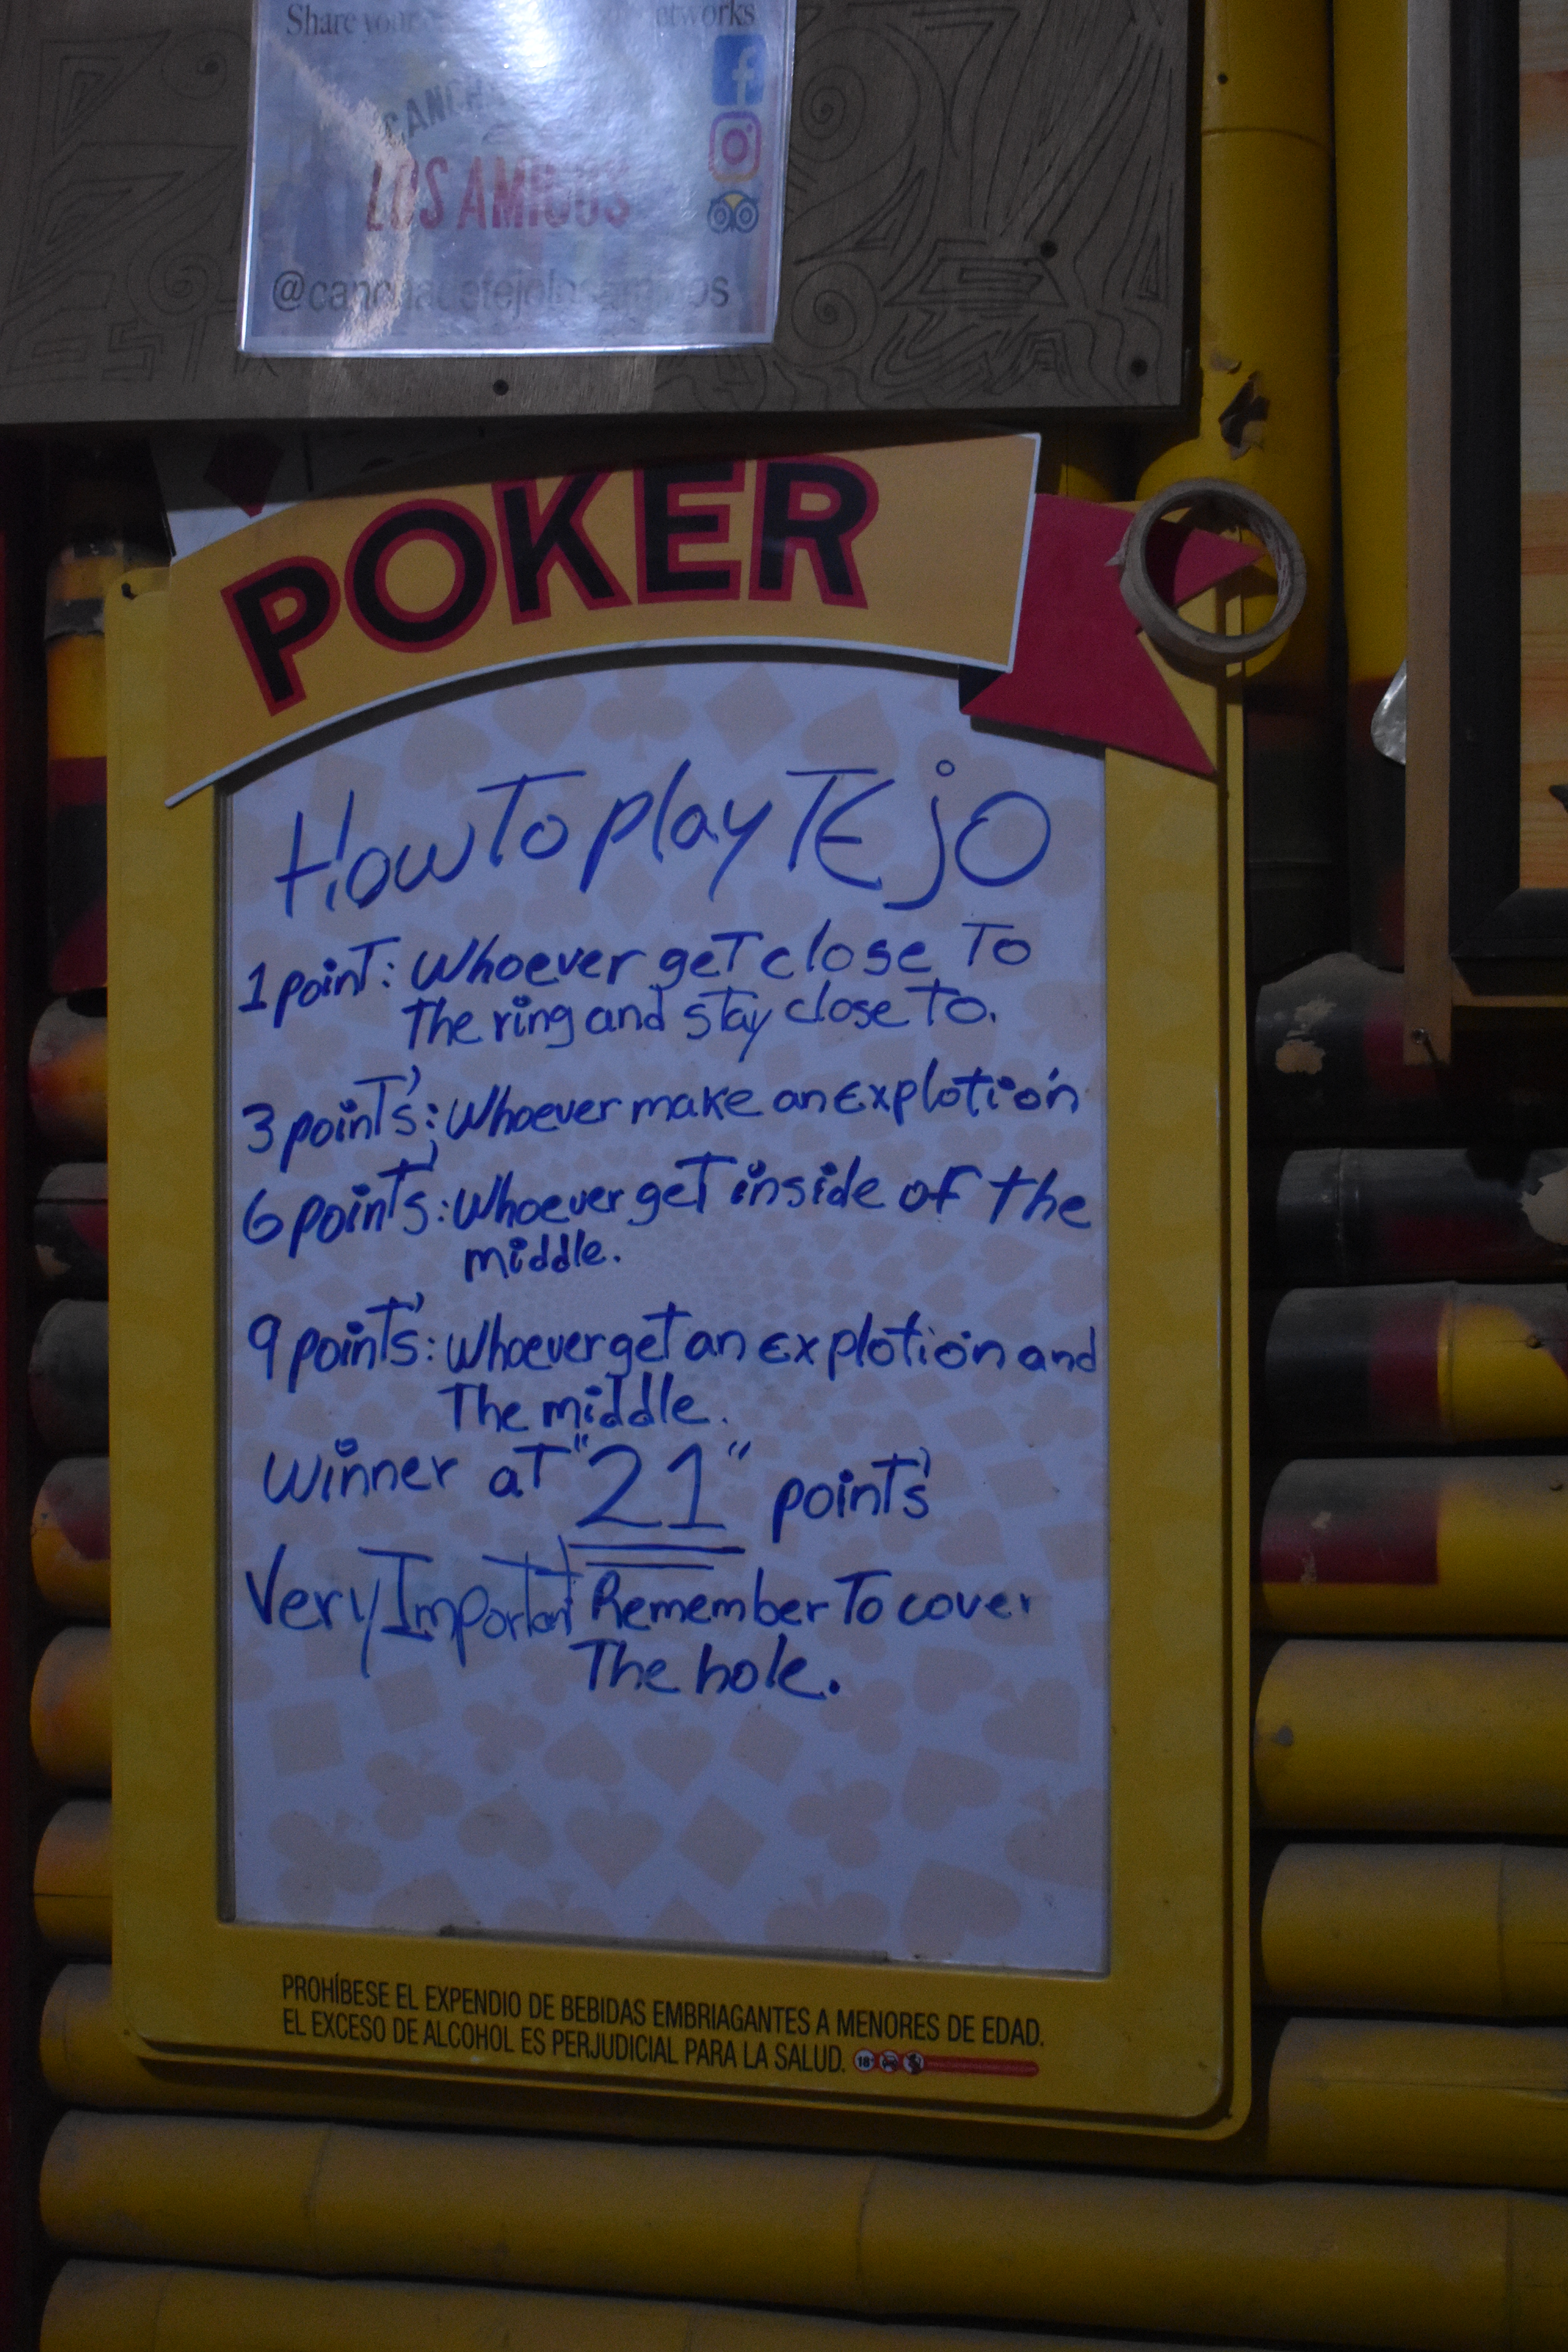 Share your networks
CANCHA
LOS AMIGOS
@canchadetejolosamigos
POKER
How To play TEjO
1 point: Whoever get close To
The ring and stay close To.
3 point's: Whoever make an explotion
6 point's: Whoever get inside of the
middle.
9 point's: Whoever get an explotion and
The middle.
Winner at "21" point's
Very Important Remember To cover
The hole.
PROHÍBESE EL EXPENDIO DE BEBIDAS EMBRIAGANTES A MENORES DE EDAD.
EL EXCESO DE ALCOHOL ES PERJUDICIAL PARA LA SALUD. 18+